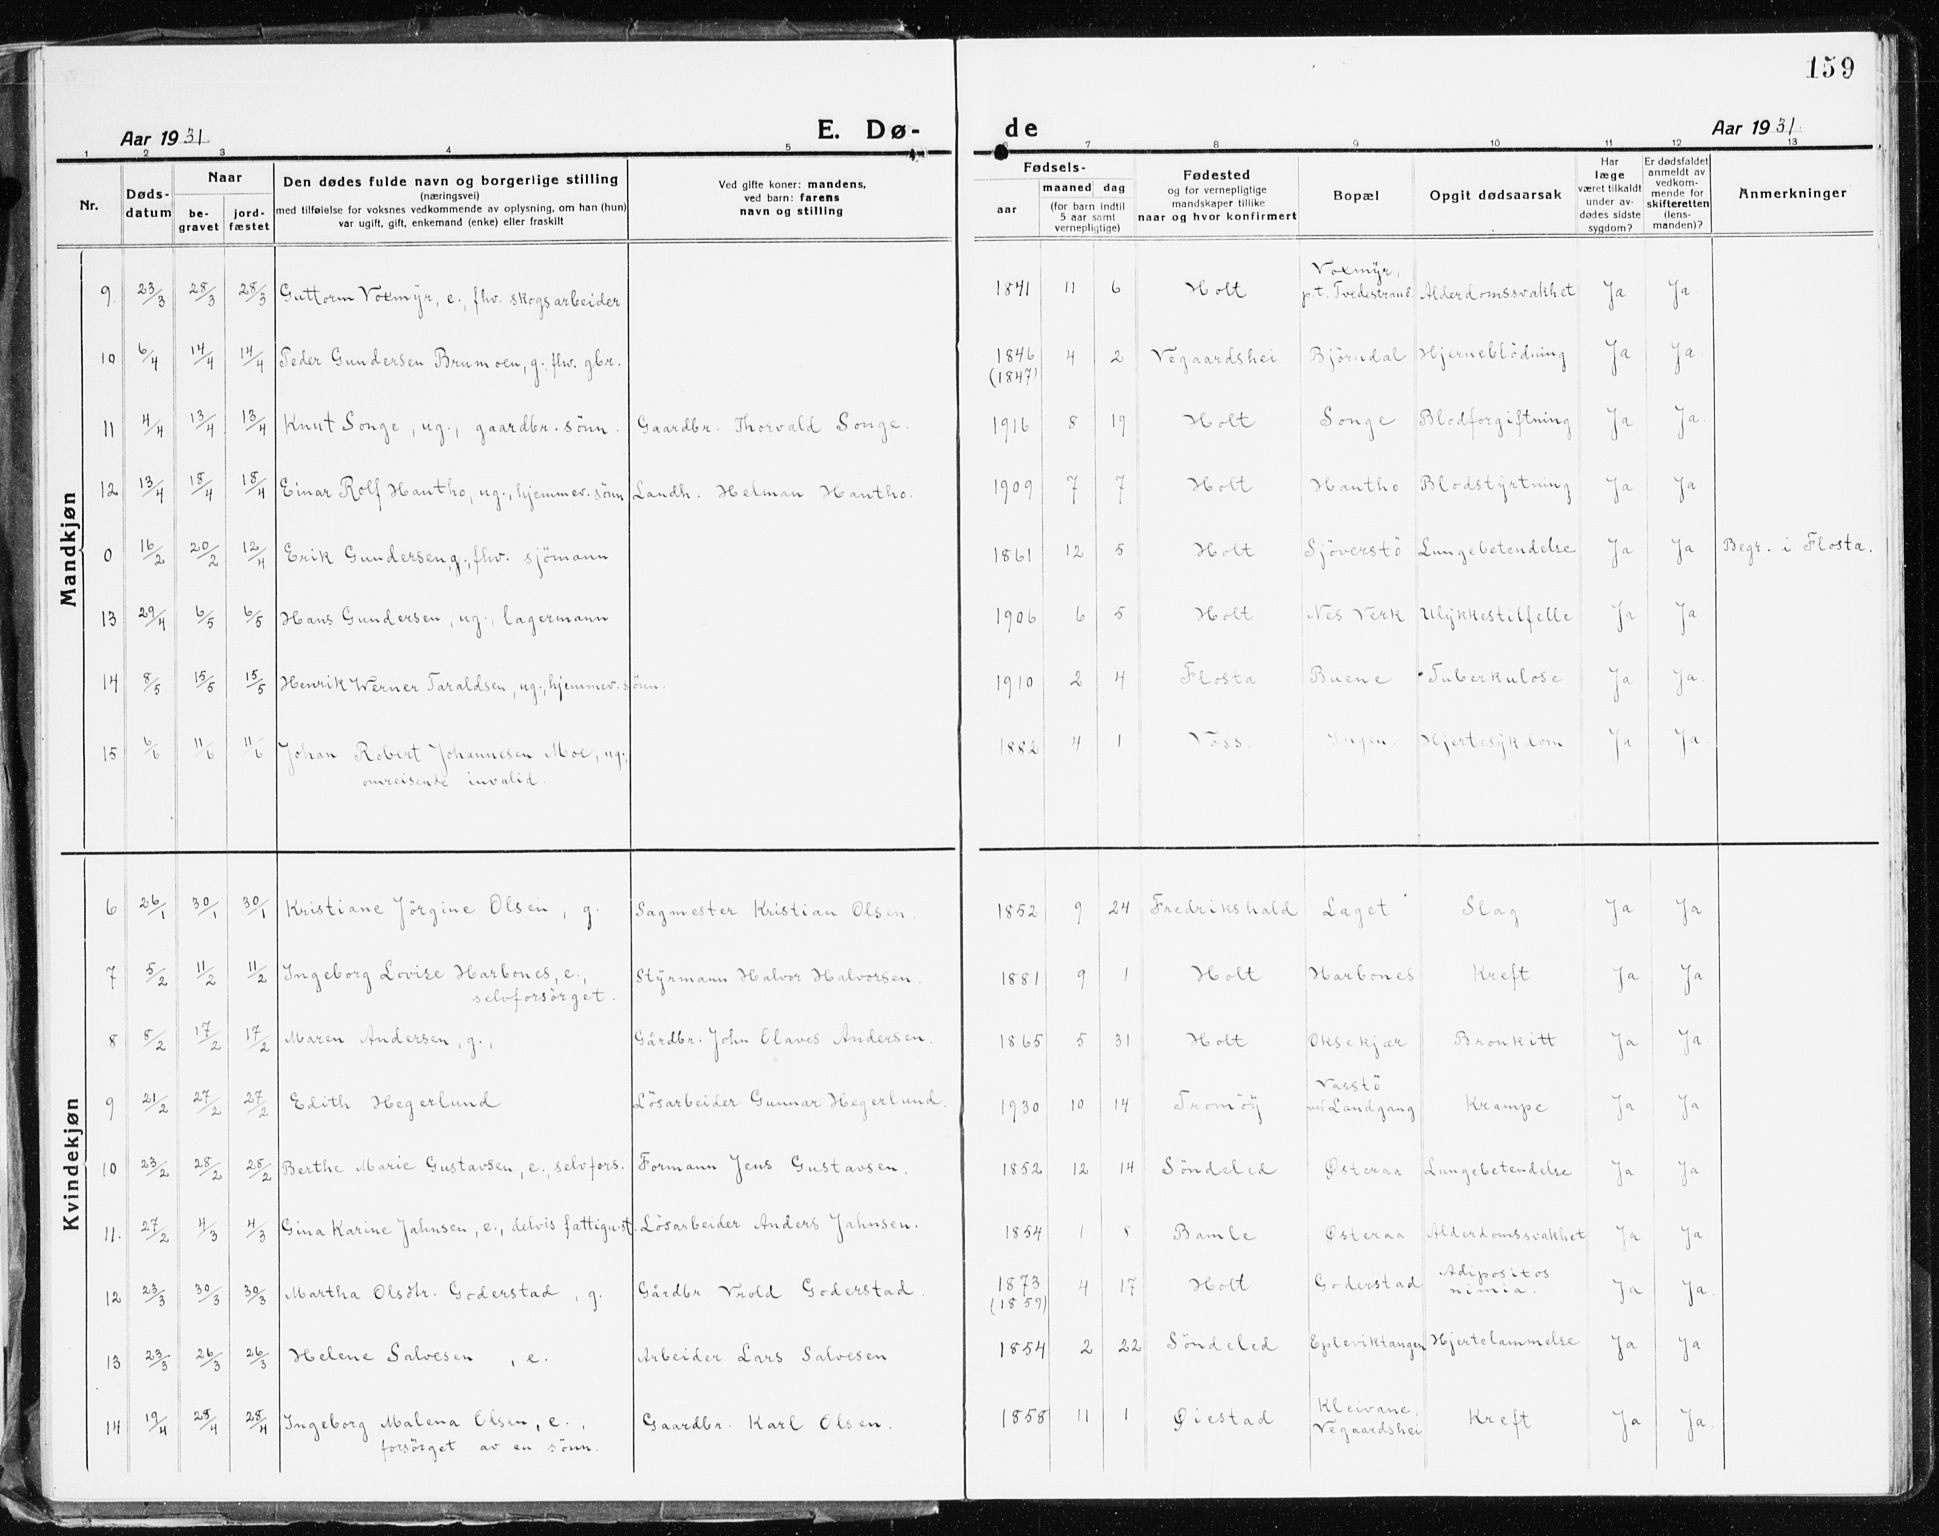 159
Aar 1931
E. Dø-
de
Aar 1931
1 2 3 4 5 6 7 8 9 10 11 12 13
Nr.
Døds-
datum
Naar
be-
gravet
jord-
fæstet
Den dødes fulde navn og borgerlige stilling
(næringsvei)
med tilføielse for voksnes vedkommende av oplysning, om han (hun)
var ugift, gift, enkemand (enke) eller fraskilt
Ved gifte koner: mandens,
ved barn: farens
navn og stilling
Fødsels-
aar
maaned dag
(for barn indtil
5 aar samt
vernepligtige)
Fødested
og for vernepligtige
mandskaper tillike
naar og hvor konfirmert
Bopæl
Opgit dødsaarsak
Har
læge
været tilkaldt
under av-
dødes sidste
sygdom?
Er dødsfaldet
anmeldt av
vedkom-
mende for
skifteretten
(lens-
manden)?
Anmerkninger
Mandkjøn
9 23/3 28/3 28/3 Guttorm Voxmyr, e., fhv. skogsarbeider 1841 11 6 Holt Voxmyr, p.t. Tvedestrand Alderdomssvakhet Ja Ja
10 6/4 14/4 14/4 Peder Gundersen Brumoen, g., fhv. gbr. 1846 (1847) 4 2 Vegaardshei Björndal Hjerneblödning Ja Ja
11 4/4 13/4 13/4 Knut Songe, ug., gaardbr. sönn. Gaardbr. Thorvald Songe. 1916 8 19 Holt Songe Blodforgiftning Ja Ja
12 13/4 18/4 18/4 Einar Rolf Hantho, ug., hjemmev. sönn Landh. Helman Hantho. 1909 7 7 Holt Hantho Blodstyrtning Ja Ja
0 16/2 20/2 12/4 Erik Gundersen, g., fhv. sjömann 1861 12 5 Holt Sjöverstö Lungebetendelse Ja Ja Begr. i Flosta.
13 29/4 6/5 6/5 Hans Gundersen, ug., lagermann 1906 6 5 Holt Nes Verk Ulykkestilfelle Ja Ja
14 8/5 15/5 15/5 Henrik Werner Taraldsen, ug., hjemmev. sönn. 1910 2 4 Flosta Buene Tuberkulose Ja Ja
15 6/6 11/6 11/6 Johan Robert Johannesen Moe, ug., 1882 4 1 Voss. Ingen. Hjertesykdom Ja Ja
omreisende invalid.
Kvindekjøn
6 26/1 30/1 30/1 Kristiane Jörgine Olsen, g. Sagmester Kristian Olsen. 1852 9 24 Fredrikshald Laget Slag Ja Ja
7 5/2 11/2 11/2 Ingeborg Lovise Harbones, e., Styrmann Halvor Halvorsen. 1881 9 1 Holt Harbones Kreft Ja Ja
selvforsörget.
8 8/2 17/2 17/2 Maren Andersen, g., Gårdbr. John Olaves Andersen. 1865 5 31 Holt Oksekjær Bronkitt Ja Ja
9 21/2 27/2 27/2 Edith Hegerlund Lösarbeider Gunnar Hegerlund. 1930 10 14 Tromöy Vasstö ved Landgang Krampe Ja Ja
10 23/2 28/2 28/2 Berthe Marie Gustavsen, e., selvfors. Formann Jens Gustavsen. 1852 12 14 Söndeled Østeraa Lungebetendelse Ja Ja
11. 27/2 4/3 4/3 Gina Karine Jahnsen, e., delvis fattigu.st. Lösarbeider Anders Jahnsen. 1854 1 8 Bamle Østeraa Alderdomssvakhet Ja Ja
12 23/3 30/3 30/3 Martha Olsdtr. Goderstad, g. Gårdbr. Vrold Goderstad. 1873 (1859) 4 17 Holt Goderstad Adipositos nimia. Ja Ja.
13 23/3 26/3 26/3 Helene Salvesen, e. Arbeider Lars Salvesen 1854 2 22 Söndeled Epleviktangen Hjertelammelse Ja Ja
14 19/4 28/4 28/4 Ingeborg Malena Olsen, e., Gaardbr. Karl Olsen. 1858 11 1 Øiestad Kleivane, Vegaardshei Kreft Ja Ja.
forsörget av en sönn.